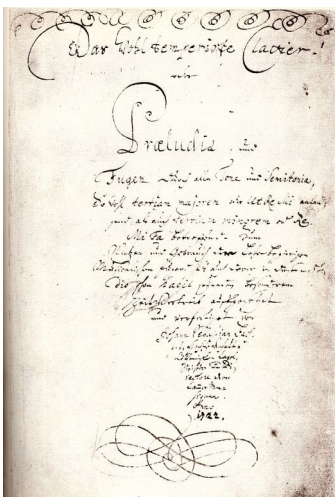 Das Wohltemperirte Clavier.
oder
Præludia, und
Fugen durch alle Tone und Semitonia,
So wohl tertiam majorem oder Ut Re Mi anlan-
gend, als auch tertiam minorem oder Re
Mi Fa betreffend. Zum
Nutzen und Gebrauch der Lehrbegierigen
Musicalischen Jugend, als auch derer in diesem
dio schon habil seyenden besonderem
ZeitVertreib auffgesetzet
und verfertiget von
Johann Sebastian Bach
Capel-
Meistern und Di-
rectore derer
Anno
1722.